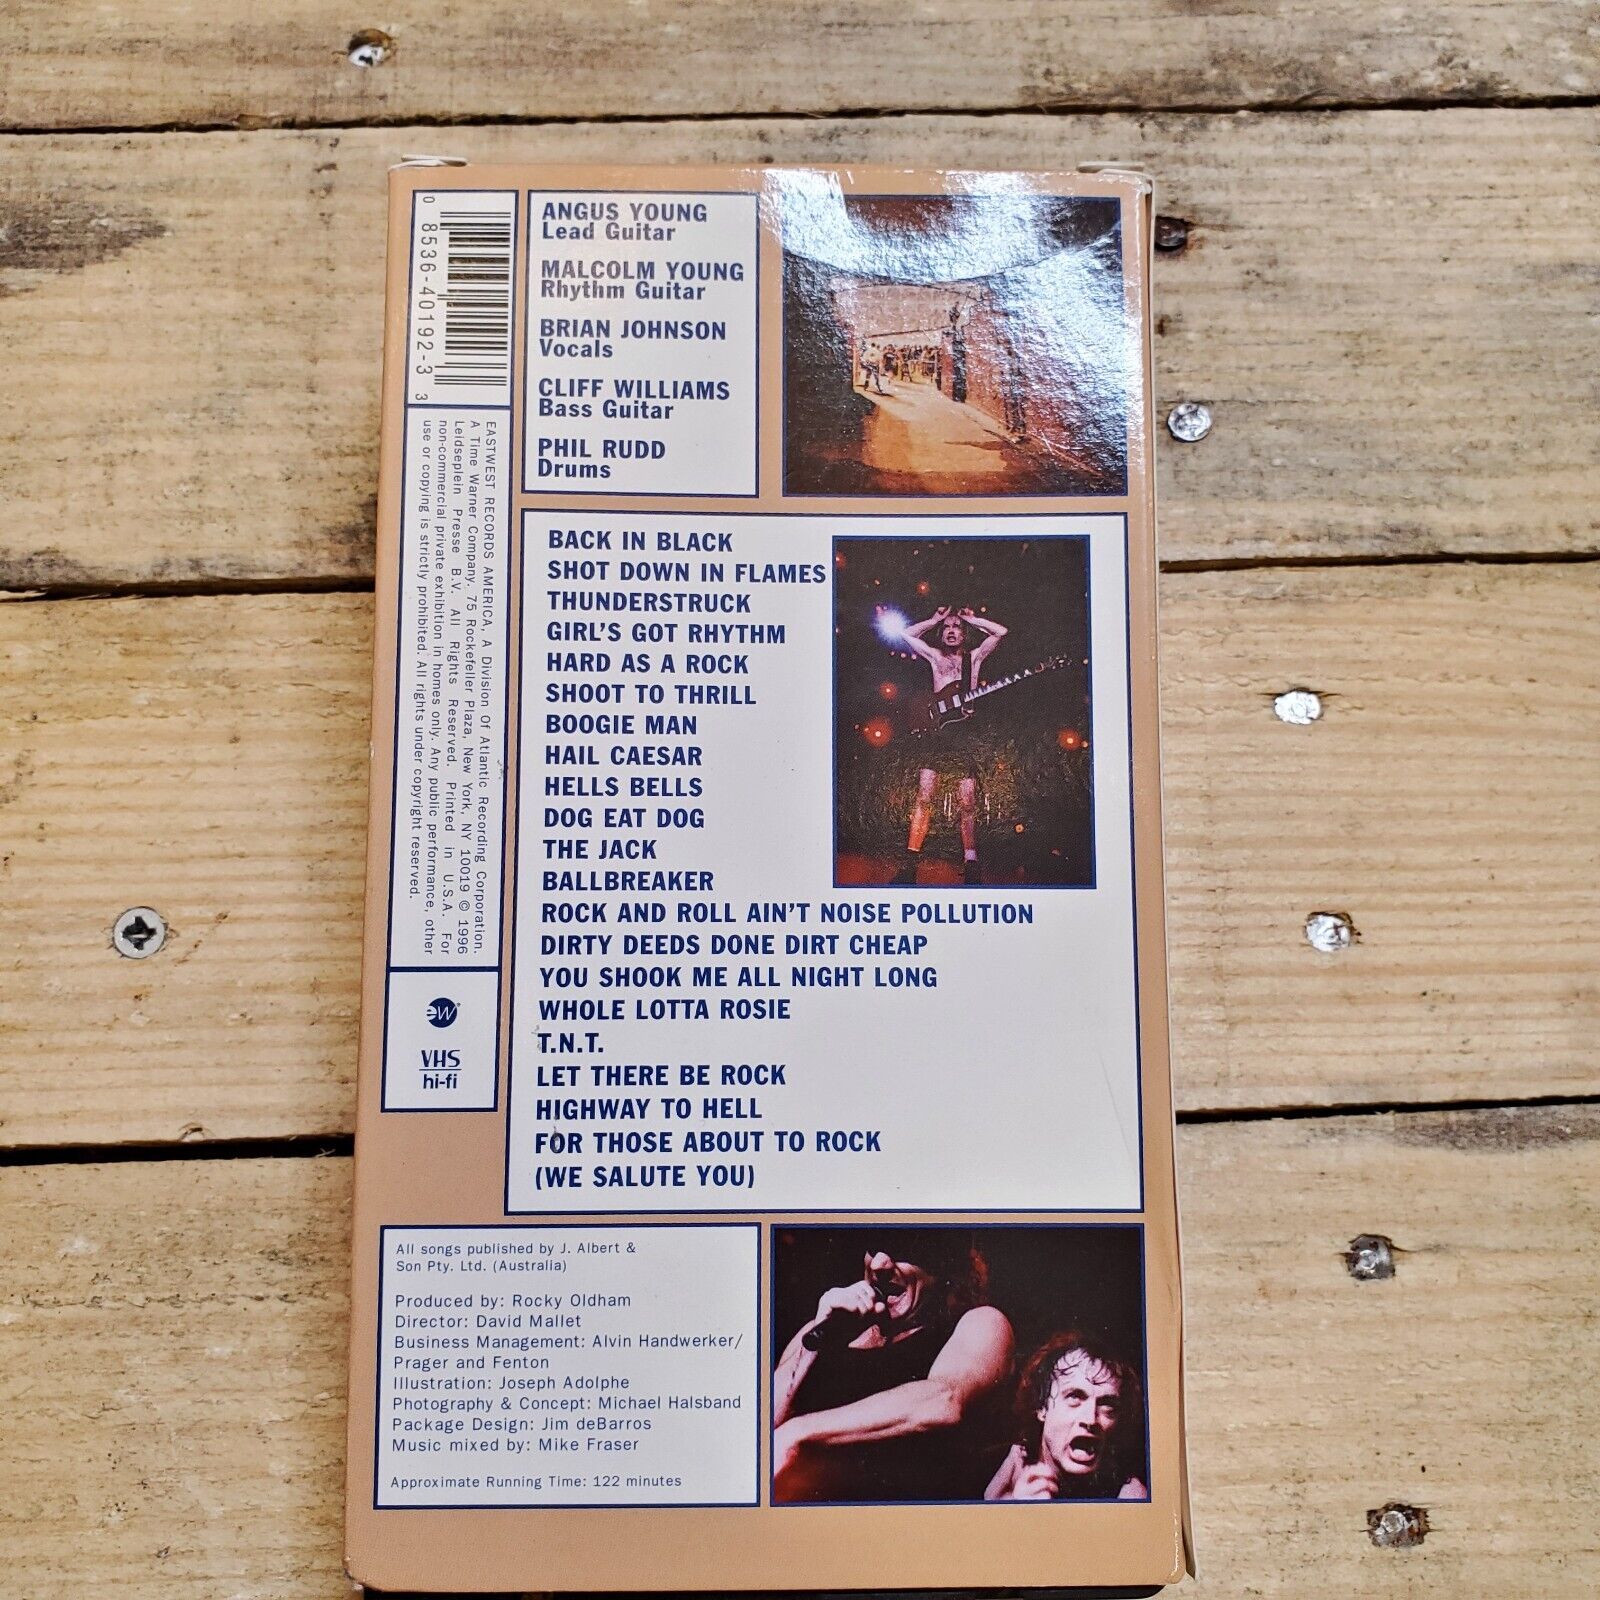 0 8536-40192-3 3
EASTWEST RECORDS AMERICA, A Division Of Atlantic Recording Corporation.
A Time Warner Company. 75 Rockefeller Plaza, New York, NY 10019 © 1996
Leidseplein Presse B.V. All Rights Reserved. Printed in U.S.A. For
non-commercial private exhibition in homes only. Any public performance, other
use or copying is strictly prohibited. All rights under copyright reserved.
ew
VHS
hi-fi
ANGUS YOUNG
Lead Guitar
MALCOLM YOUNG
Rhythm Guitar
BRIAN JOHNSON
Vocals
CLIFF WILLIAMS
Bass Guitar
PHIL RUDD
Drums
BACK IN BLACK
SHOT DOWN IN FLAMES
THUNDERSTRUCK
GIRL'S GOT RHYTHM
HARD AS A ROCK
SHOOT TO THRILL
BOOGIE MAN
HAIL CAESAR
HELLS BELLS
DOG EAT DOG
THE JACK
BALLBREAKER
ROCK AND ROLL AIN'T NOISE POLLUTION
DIRTY DEEDS DONE DIRT CHEAP
YOU SHOOK ME ALL NIGHT LONG
WHOLE LOTTA ROSIE
T.N.T.
LET THERE BE ROCK
HIGHWAY TO HELL
FOR THOSE ABOUT TO ROCK
(WE SALUTE YOU)
All songs published by J. Albert &
Son Pty. Ltd. (Australia)
Produced by: Rocky Oldham
Director: David Mallet
Business Management: Alvin Handwerker/
Prager and Fenton
Illustration: Joseph Adolphe
Photography & Concept: Michael Halsband
Package Design: Jim deBarros
Music mixed by: Mike Fraser
Approximate Running Time: 122 minutes